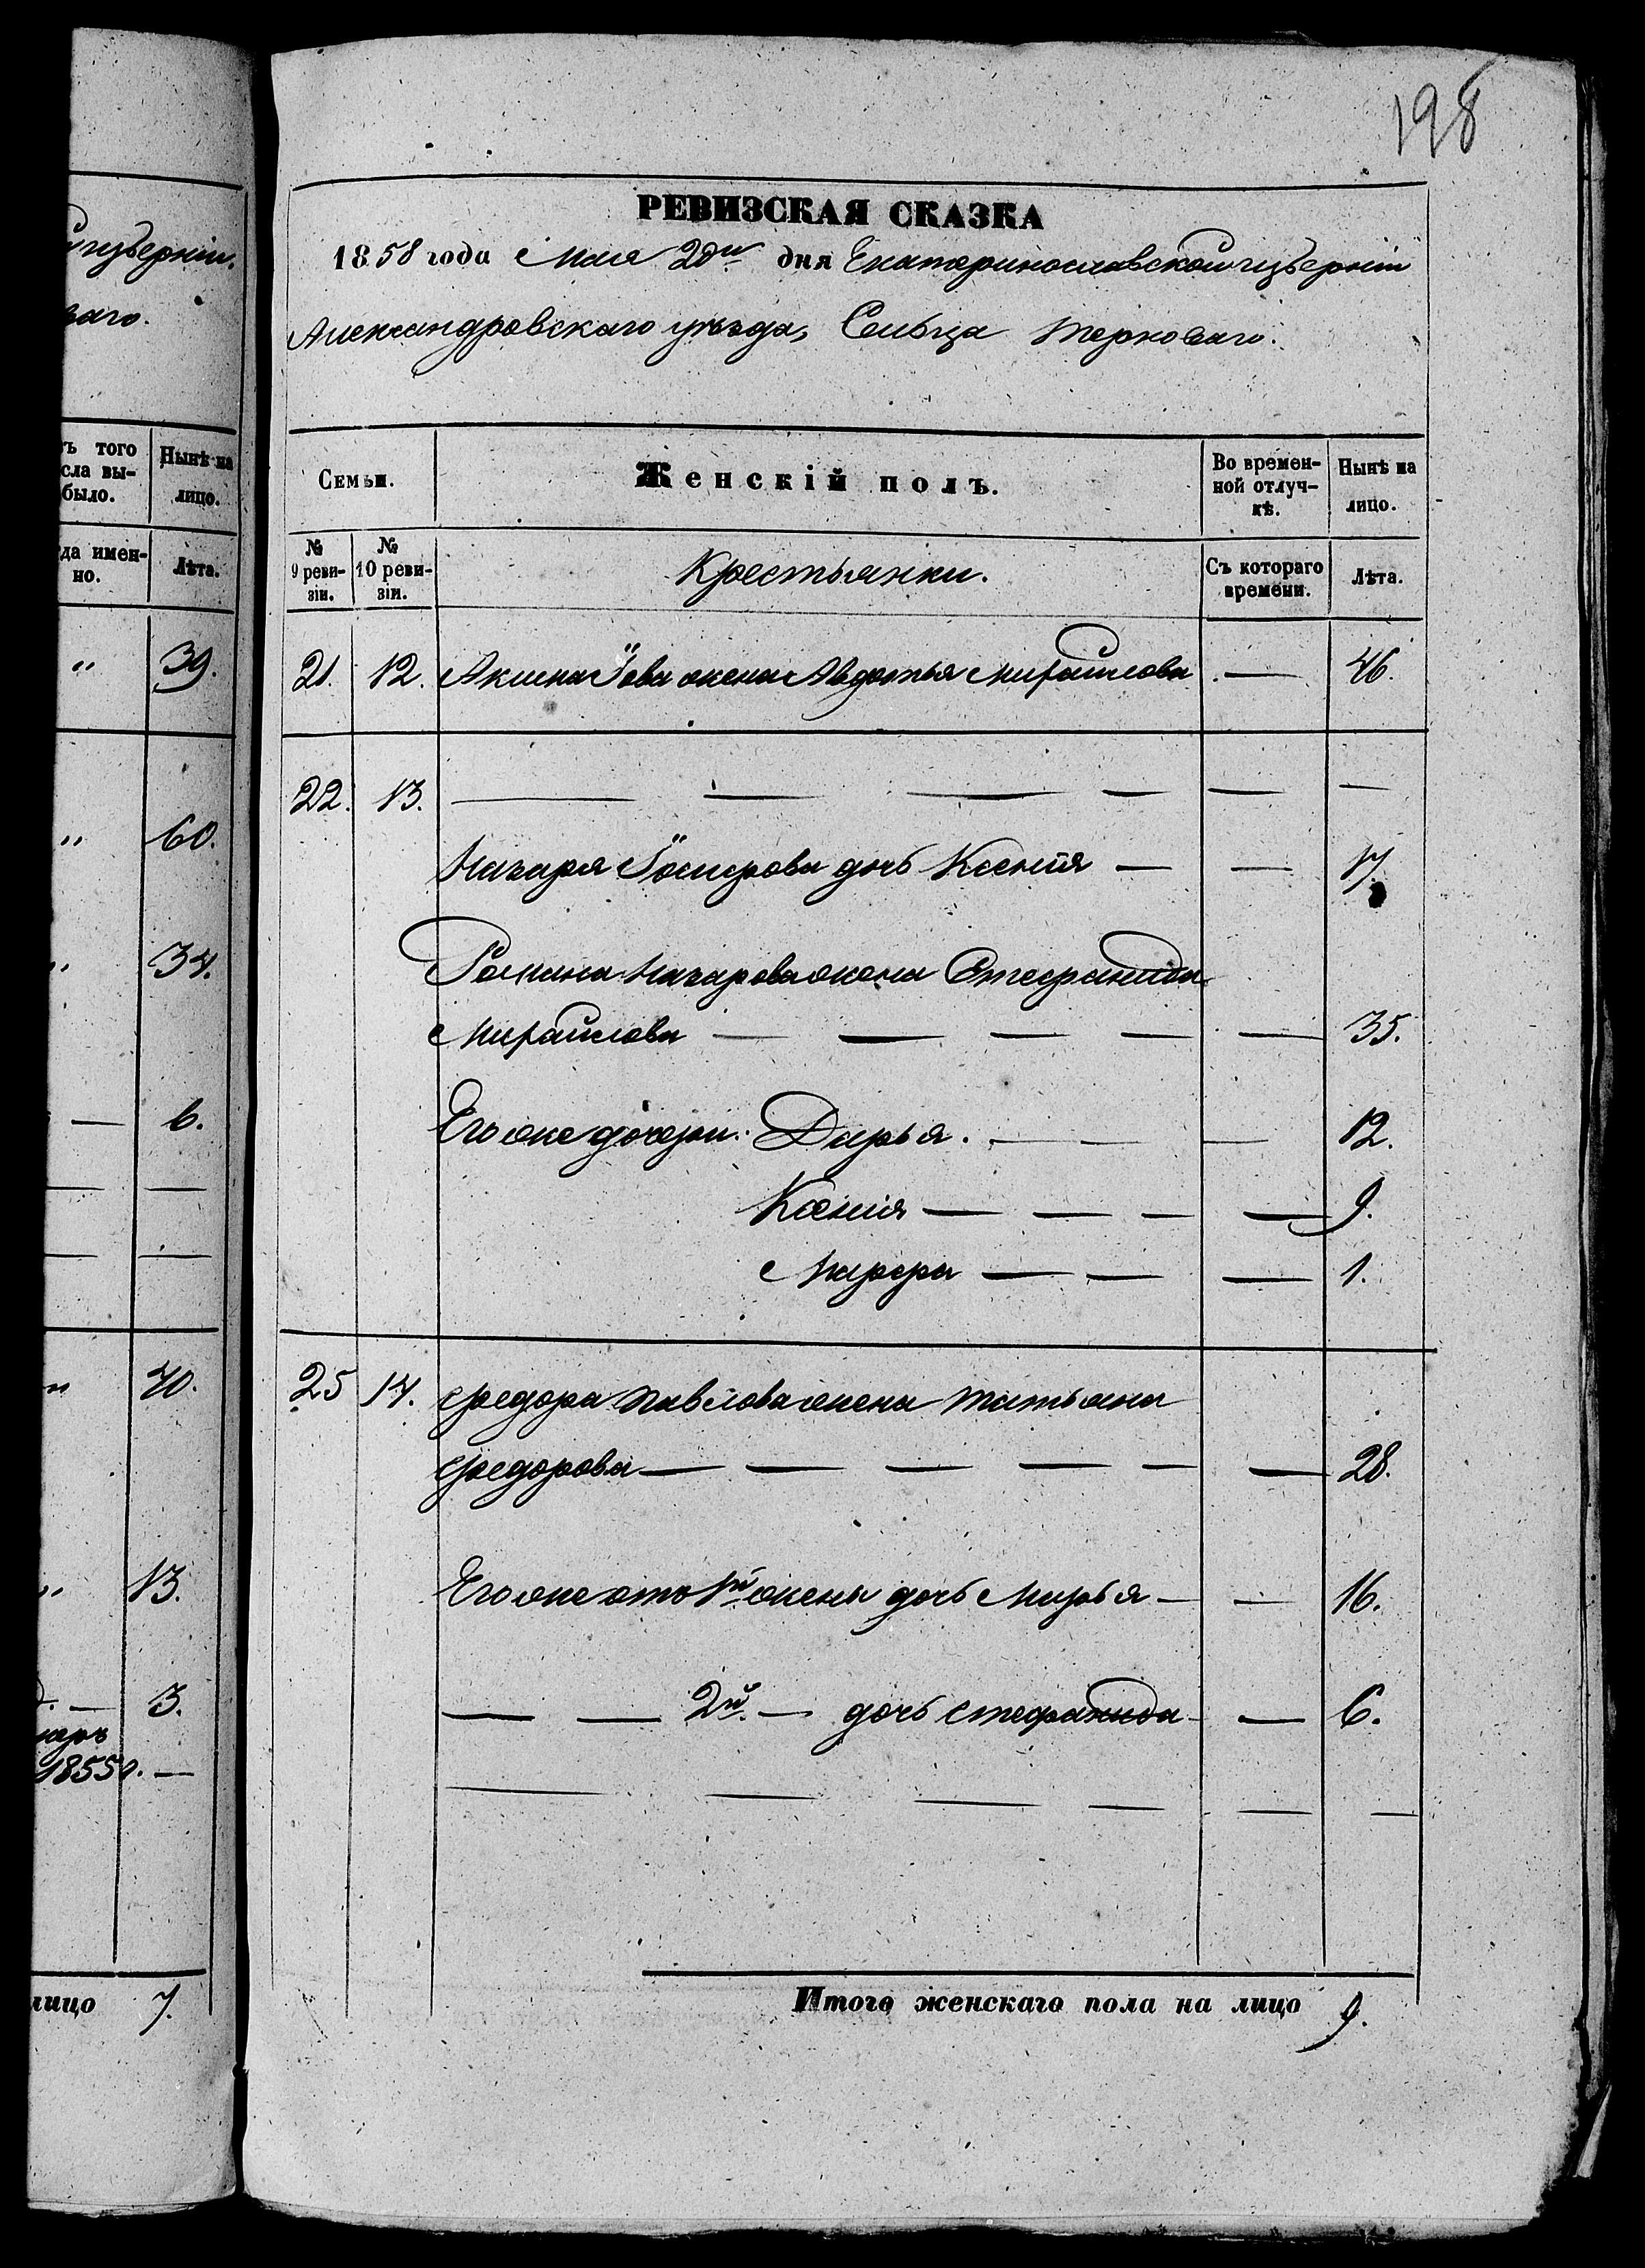 198
губерніи.
ваго.
РЕВИЗСКАЯ СКАЗКА
1858 года Мая 2дн дня Екатеринославской губерніи
Александровскаго уѣзда, Сельца Терноваго.
того
сла вы-
было.
Нынѣ на
лицо.
да имен-
но.
Лѣта.
Семьи.
Женскій полъ.
Во времен-
ной отлуч-
кѣ.
Нынѣ на
лицо.
№
9 реви-
зіи.
№
10 реви-
зіи.
Крестьянки.
Съ котораго
времени.
Лѣта.
„ 39.
21. 12. Акима Іова жена Авдотья Михайлова — 46.
22. 13. — — — — — —
„ 60.
Назара дчь Ксенія — — 17.
„ 34.
Романа Назарова жена Стефанида
Михайлова — — — — — 35.
— 6.
Его же дочери: Дарья. — — — 12.
Ксенія — — — — 9.
Марфа — — — 1.
„ 40.
25 14. Федора Павлова жена Татьяна
Федорова — — — — — — 28.
„ 13.
Его же отъ 1й жены дочь Марья — — 16.
— 3.
— — 2й. — дочь Стефанида — — 6.
1855г. —
— — — — — —
лицо 7.
Итого женскаго пола на лицо 9.